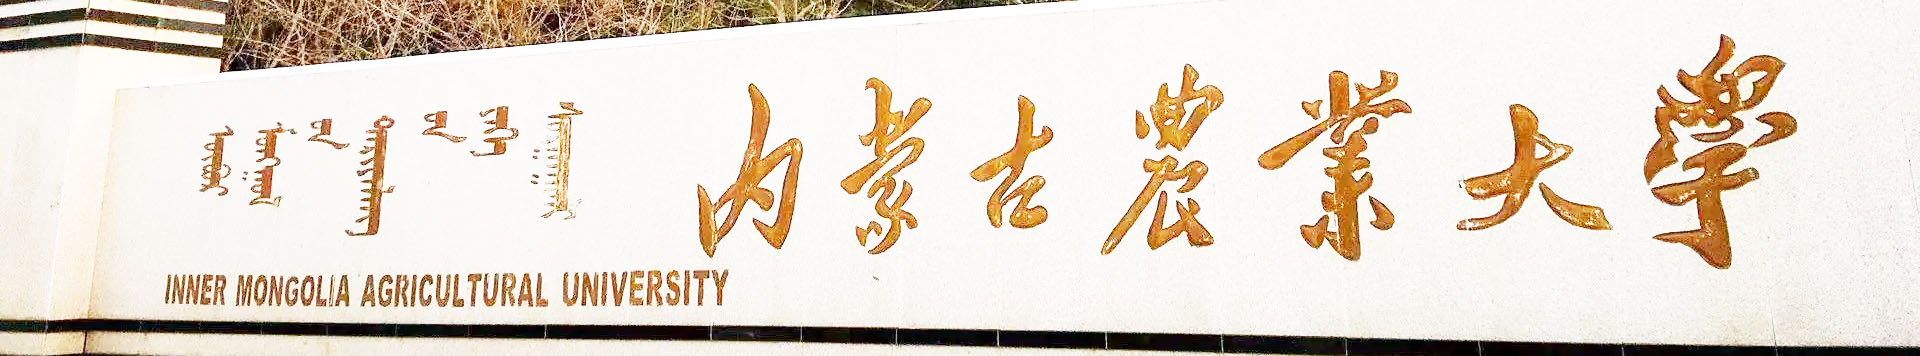 ᠥᠪᠥᠷ ᠮᠣᠩᠭᠣᠯ ᠤᠨ ᠲᠠᠷᠢᠶᠠᠯᠠᠩ ᠤᠨ ᠶᠡᠬᠡ ᠰᠤᠷᠭᠠᠭᠤᠯᠢ
内蒙古農業大學
INNER MONGOLIA AGRICULTURAL UNIVERSITY